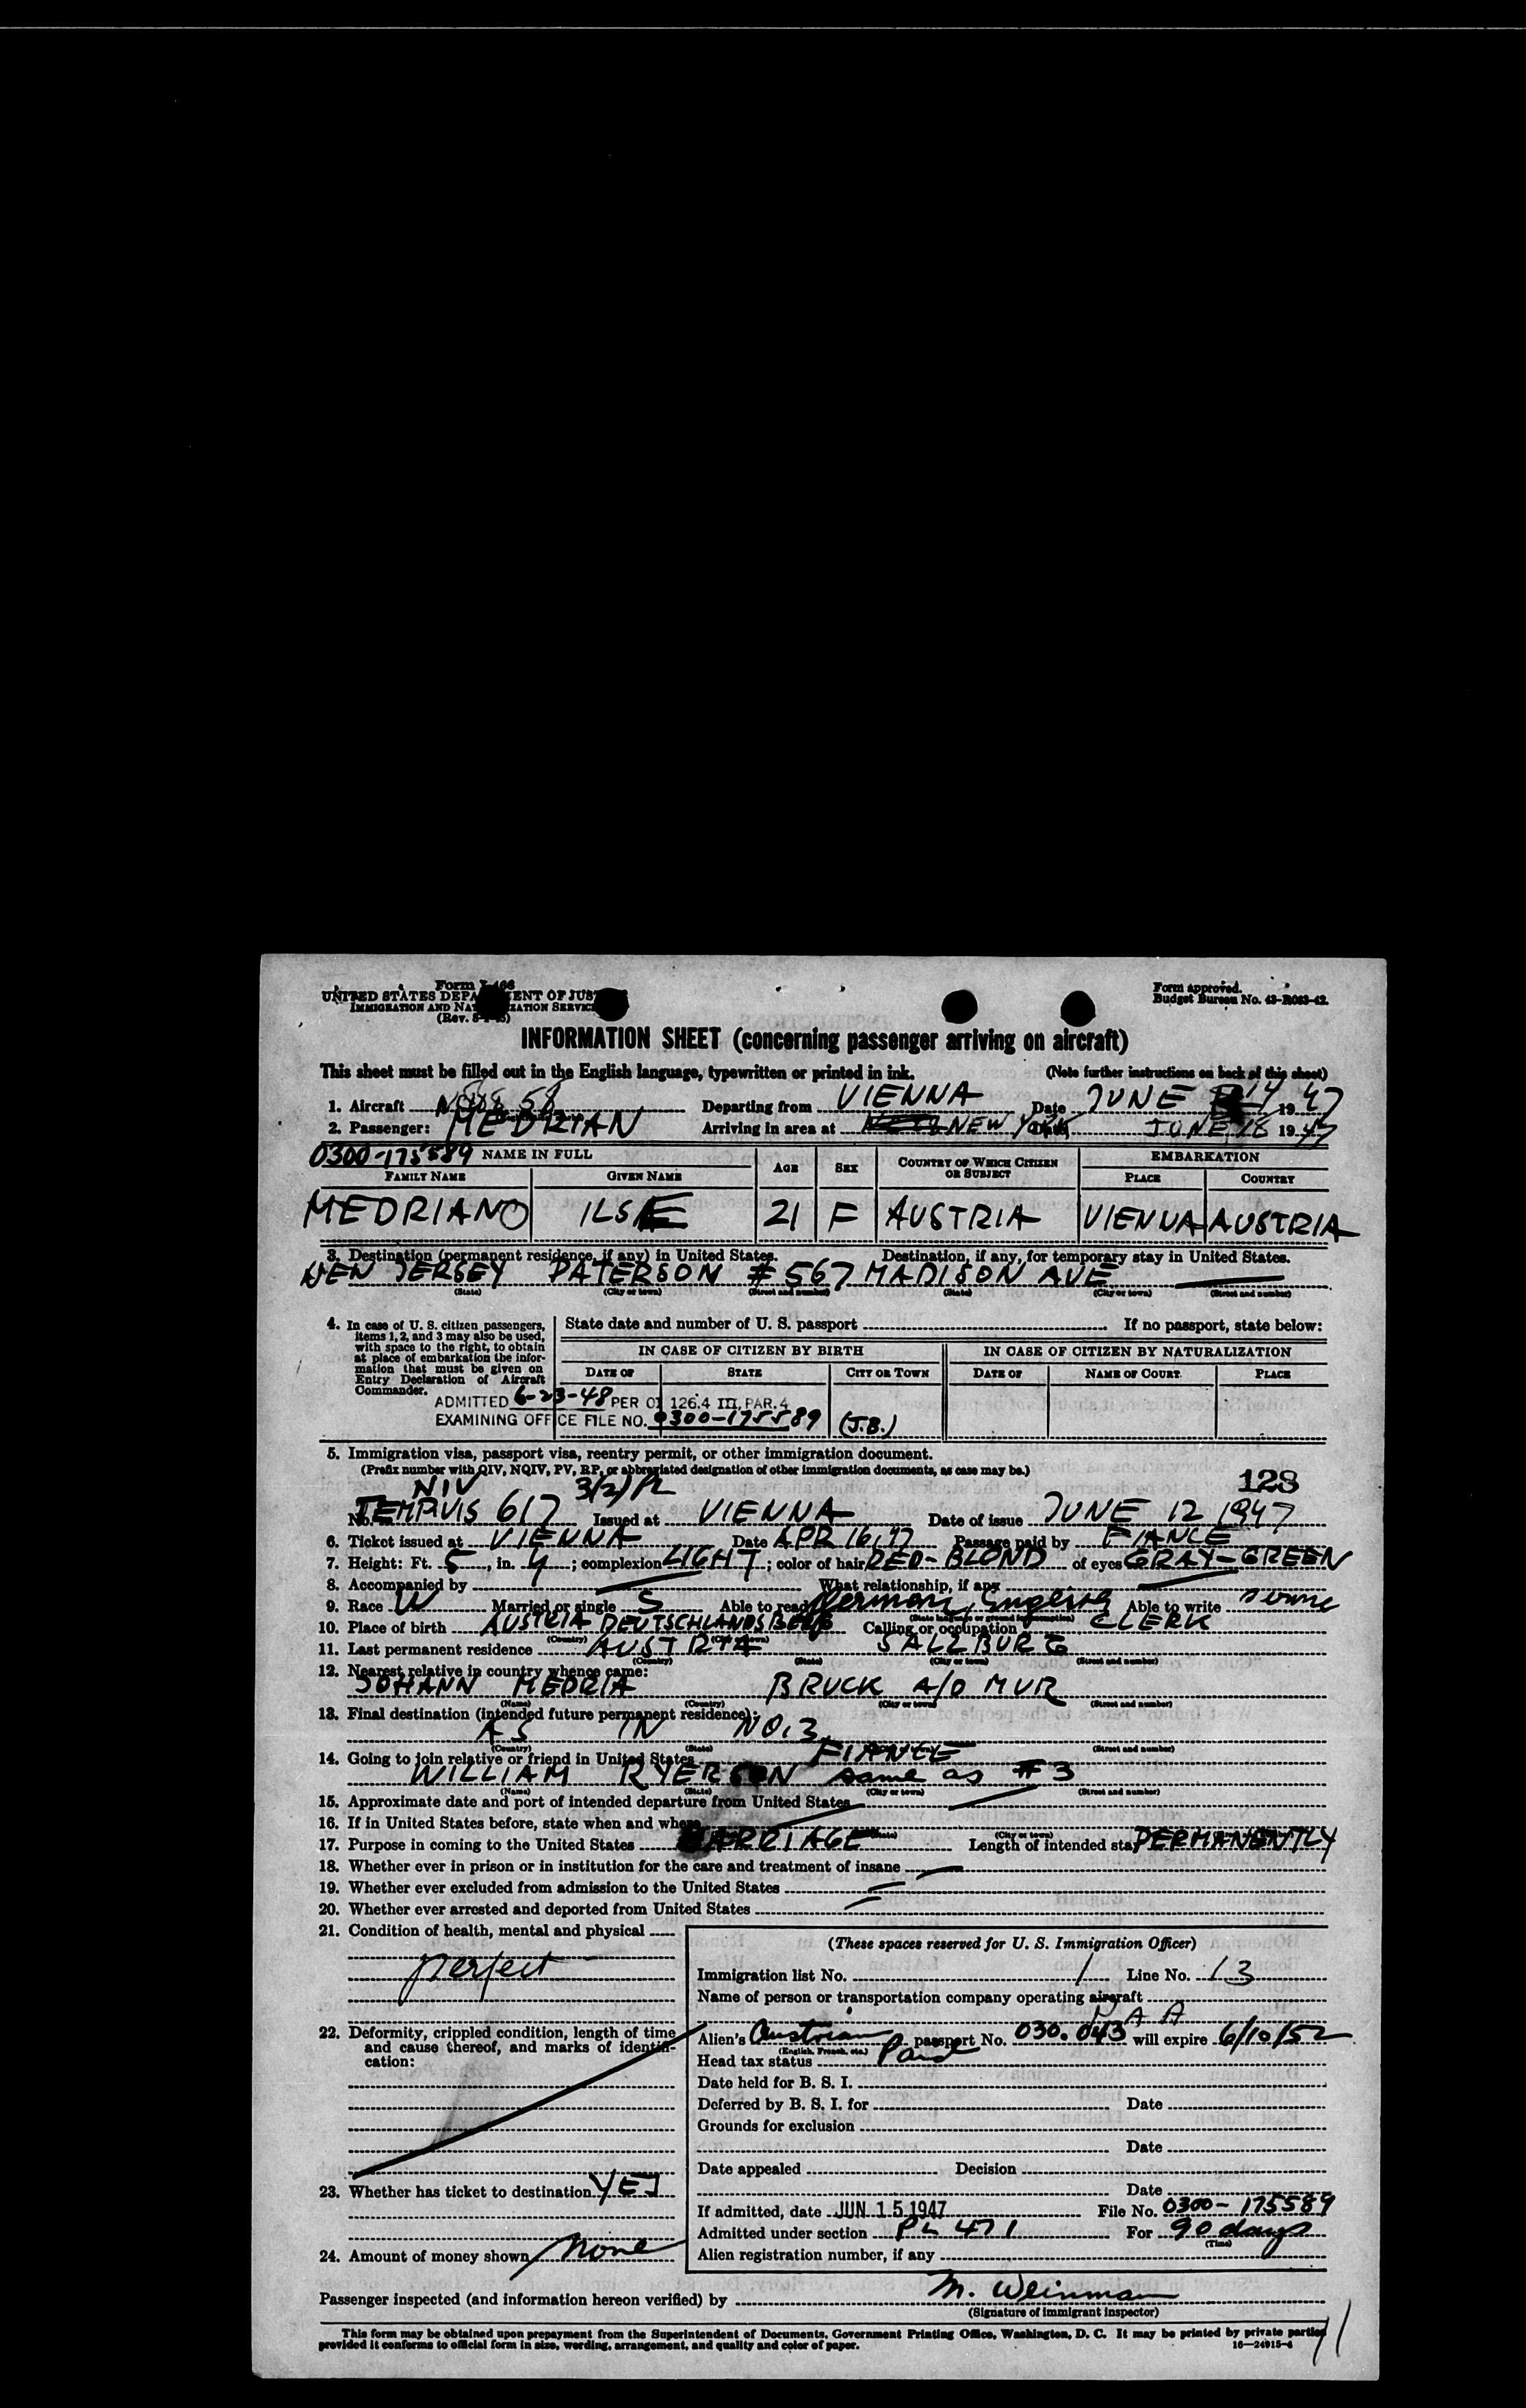 Form I-466
UNITED STATES DEPARTMENT OF JUSTICE
IMMIGRATION AND NATURALIZATION SERVICE
(Rev.
Form approved.
Budget Bureau No. 43-R063-42.
INFORMATION SHEET (concerning passenger arriving on aircraft)
This sheet must be filled out in the English language, typewritten or printed in ink. (Note further instructions on back of this sheet)
1. Aircraft 58 Departing from VIENNA Date JUNE 14 1947
2. Passenger: MEDRIAN Arriving in area at NEW YORK Date JUNE 1947
0300-175589 NAME IN FULL AGE SEX COUNTRY OF WHICH CITIZEN OR SUBJECT EMBARKATION
FAMILY NAME GIVEN NAME PLACE COUNTRY
MEDRIANO ILSE 21 F AUSTRIA VIENNA AUSTRIA
3. Destination (permanent residence, if any) in United States. Destination, if any, for temporary stay in United States.
NEW JERSEY PATERSON # 567 MADISON AVE
(State) (City or town) (Street and number) (State) (City or town) (Street and number)
4. In case of U. S. citizen passengers, items 1, 2, and 3 may also be used, with space to the right, to obtain at place of embarkation the information that must be given on Entry Declaration of Aircraft Commander.
State date and number of U. S. passport If no passport, state below:
IN CASE OF CITIZEN BY BIRTH IN CASE OF CITIZEN BY NATURALIZATION
DATE OF STATE CITY OR TOWN DATE OF NAME OF COURT PLACE
ADMITTED 6-23-48 PER OI 126.4 III, PAR. 4
EXAMINING OFFICE FILE NO. 0300-175589 (J.B.)
5. Immigration visa, passport visa, reentry permit, or other immigration document.
(Prefix number with QIV, NQIV, PV, RP, or abbreviated designation of other immigration documents, as case may be.)
128
NIV 3(2)
No. TEMPVIS 617 Issued at VIENNA Date of issue JUNE 12 1947
6. Ticket issued at VIENNA Date APR 16, 47 Passage paid by FIANCE
7. Height: Ft. 5, in. 4; complexion LIGHT; color of hair RED-BLOND of eyes GRAY-GREEN
8. Accompanied by What relationship, if any
9. Race W Married or single S Able to read German, English Able to write same
(State language or ground for exemption)
10. Place of birth AUSTRIA DEUTSCHLANDSBERG Calling or occupation CLERK
(Country) (City or town)
11. Last permanent residence AUSTRIA SALZBURG
(Country) (State) (City or town) (Street and number)
12. Nearest relative in country whence came:
JOHANN MEDRIA BRUCK A/O MUR
(Name) (Country) (City or town) (Street and number)
13. Final destination (intended future permanent residence):
AS IN NO. 3
(Country) (State) (Street and number)
14. Going to join relative or friend in United States FIANCE
WILLIAM RYERSON same as # 3
(Name) (State) (City or town) (Street and number)
15. Approximate date and port of intended departure from United States
16. If in United States before, state when and where
(State) (City or town)
17. Purpose in coming to the United States MARRIAGE Length of intended stay PERMANENTLY
18. Whether ever in prison or in institution for the care and treatment of insane
19. Whether ever excluded from admission to the United States
20. Whether ever arrested and deported from United States
21. Condition of health, mental and physical
perfect
22. Deformity, crippled condition, length of time and cause thereof, and marks of identification:
23. Whether has ticket to destination YES
24. Amount of money shown None
(These spaces reserved for U. S. Immigration Officer)
Immigration list No. 1 Line No. 13
Name of person or transportation company operating aircraft
P A A
Alien's Austrian passport No. 030.043 will expire 6/10/52
(English, French, etc.)
Head tax status Paid
Date held for B. S. I.
Deferred by B. S. I. for Date
Grounds for exclusion
Date
Date appealed Decision
Date
If admitted, date JUN 15 1947 File No. 0300-175589
Admitted under section PL 471 For 90 days
(Time)
Alien registration number, if any
Passenger inspected (and information hereon verified) by M. Weinman
(Signature of immigrant inspector)
This form may be obtained upon prepayment from the Superintendent of Documents, Government Printing Office, Washington, D. C. It may be printed by private parties
provided it conforms to official form in size, wording, arrangement, and quality and color of paper. 16—24915-4